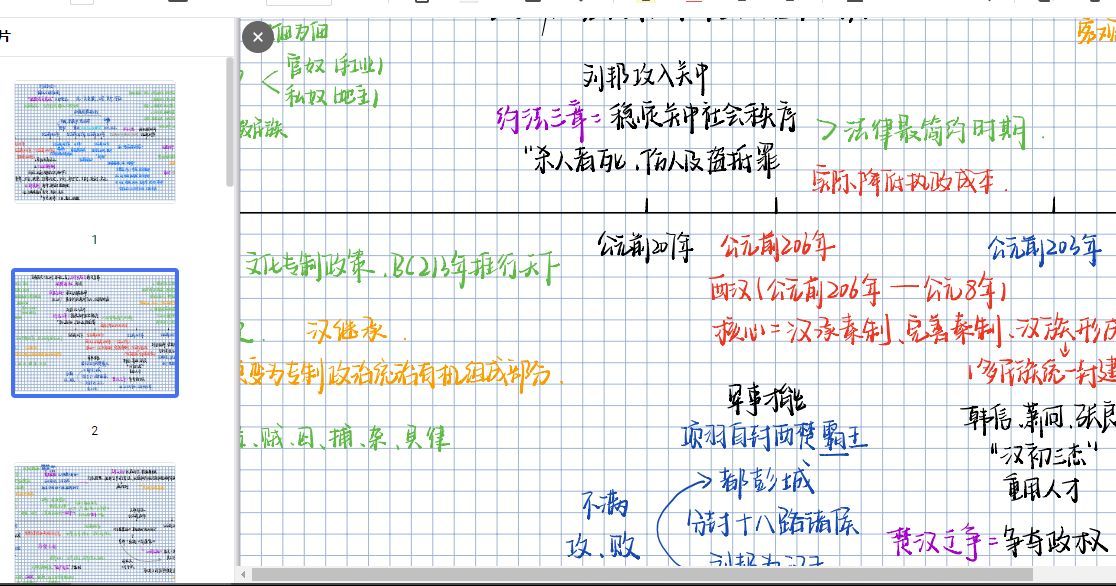 片
官奴（手工业）
私奴（地主）
刘邦攻入关中
约法三章=稳定关中社会秩序
>法律最简约时期.
"杀人者死、伤人及盗抵罪
实际降低执政成本.
公元前207年
公元前206年
公元前203年
文化专制政策.BC213年推行天下
两汉（公元前206年—公元8年）
汉继承.
核心=汉承秦制、完善秦制、汉族形成
变为专制政治统治有机组成部分.
多民族统一封建
军事才能
韩信、萧何、张良
贼、囚、捕、杂、具律
项羽自封西楚霸王
"汉初三杰"
都彭城
重用人才
不满
分封十八路诸侯
攻、败
楚汉之争=争夺政权
刘邦为汉王
1
2